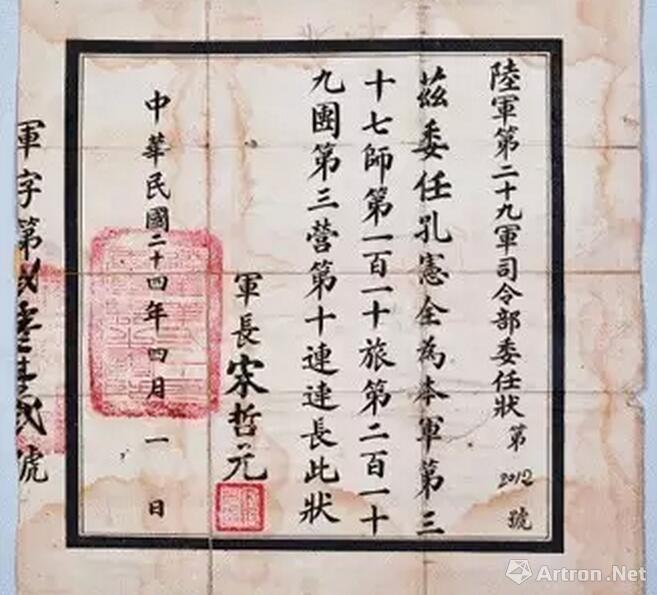 陸軍第二十九軍司令部委任狀第2012號
茲委任孔憲全為本軍第三
十七師第一百一十旅第二百一十
九團第三營第十連連長此狀
軍長宋哲元
中華民國二十四年四月一日
軍字第貳零壹貳號
Artron.Net